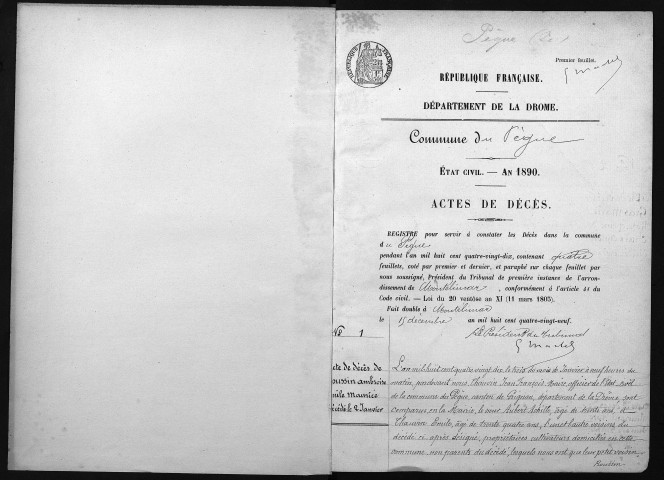 Pègue (Le)
Premier feuillet.
RÉPUBLIQUE FRANÇAISE.
DÉPARTEMENT DE LA DROME.
Commune du Pègue
ÉTAT CIVIL. — AN 1890.
ACTES DE DÉCÈS.
REGISTRE pour servir à constater les Décès dans la commune
du Pègue
pendant l'an mil huit cent quatre-vingt-dix, contenant quatre
feuillets, coté par premier et dernier, et paraphé sur chaque feuillet par
nous soussigné, Président du Tribunal de première instance de l'arron-
dissement de Montélimar, conformément à l'article 41 du
Code civil. — Loi du 20 ventôse an XI (11 mars 1803).
Fait double à Montélimar
le 15 décembre an mil huit cent quatre-vingt-neuf.
Le Président du tribunal
N° 1
cte de décès de
oussin ambroise
mile maurice
écédé le 2 Janvier
L'an mil huit cent quatre vingt dix le trois du mois de Janvier à neuf heures du
matin, pardevant nous Chauvin Jean François, maire officier de l'état civil
de la commune du Pègue, canton de Grignan, département de la Drôme, sont
comparus en la Mairie, le sieur Aubert Achille, âgé de trente six, et
Chauvin Emile, âgé de trente quatre ans, l'un et l'autre voisins du
décédé ci après désigné, propriétaires cultivateurs domiciliés en cette
commune, non parents du décédé, lesquels nous ont que leur petit voisin